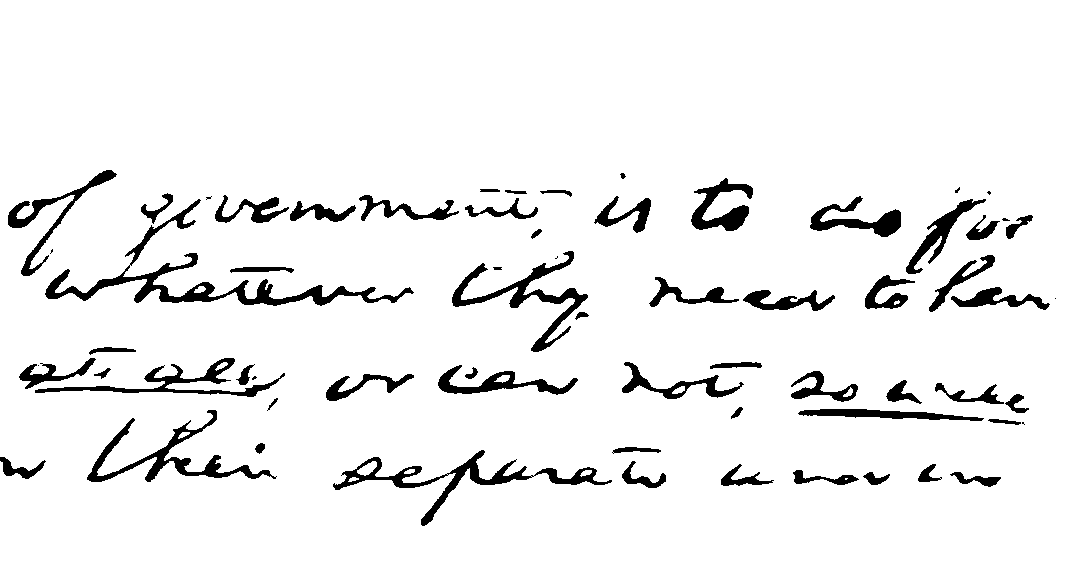 of government, is to do for
whatever they need to have
at all, or can not, so well
their separate